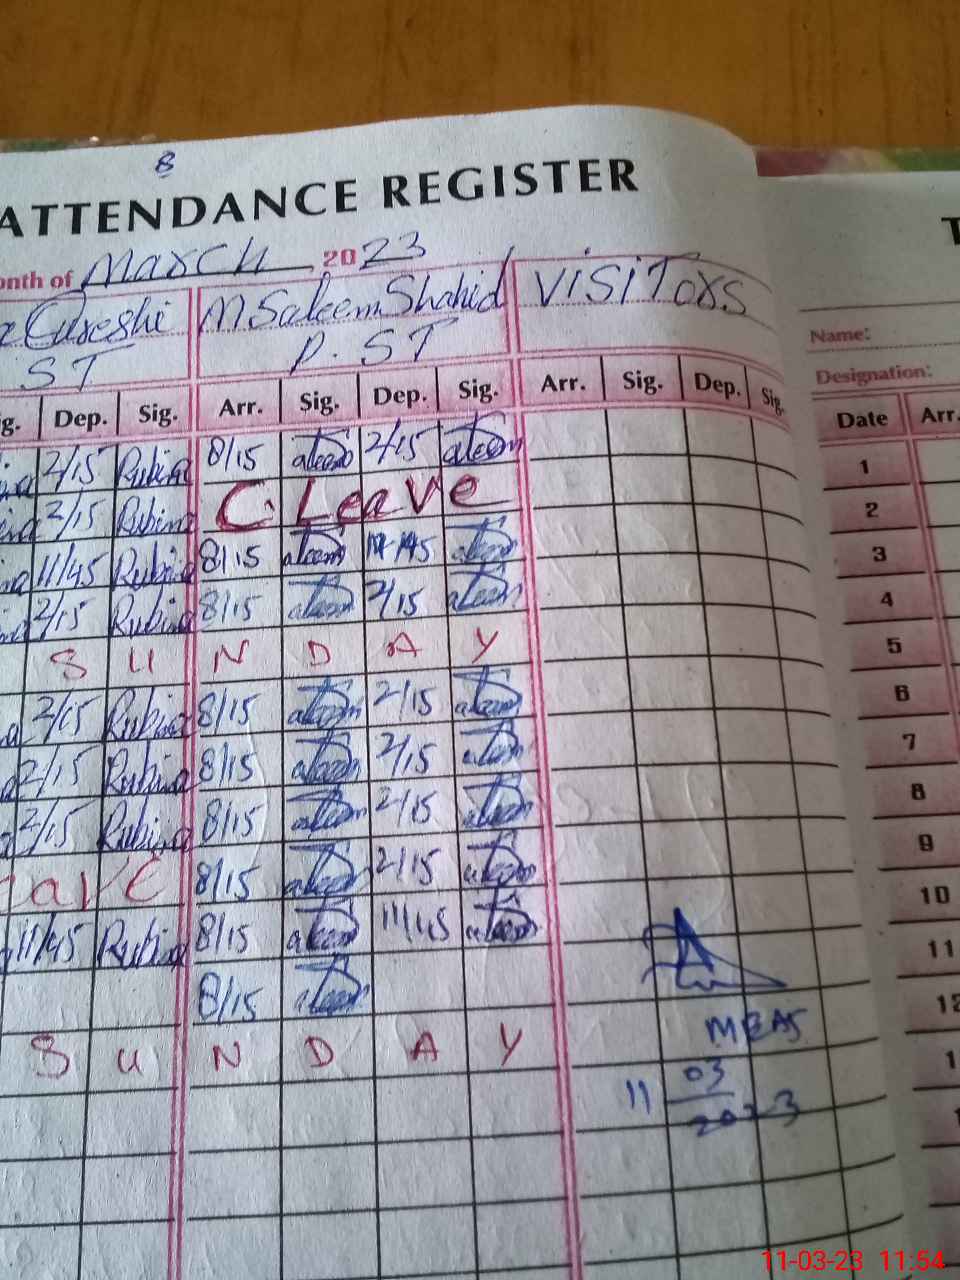 8
ATTENDANCE REGISTER
onth of March 2023
Qureshi M Saleem Shahid Visitors
ST P. ST
g. Dep. Sig. Arr. Sig. Dep. Sig. Arr. Sig. Dep. Sig.
2/15 Rubina 8/15 aleem 2/15 aleem
2/15 Rubina C. Leave
11/45 Rubina 8/15 aleem aleem
2/15 Rubina 8/15 aleem 2/15 aleem
S U N D A Y
2/15 Rubina 8/15 aleem 2/15 aleem
2/15 Rubina 8/15 aleem 2/15 aleem
2/15 Rubina 8/15 aleem 2/15 aleem
eave 8/15 aleem 2/15 aleem
11/45 Rubina 8/15 aleem 11/45 aleem
8/15 aleem
S U N D A Y
MEAS
11 03
2023
T
Name:
Designation:
Date Arr.
1
2
3
4
5
6
7
8
9
10
11
12
1
11-03-23 11:54